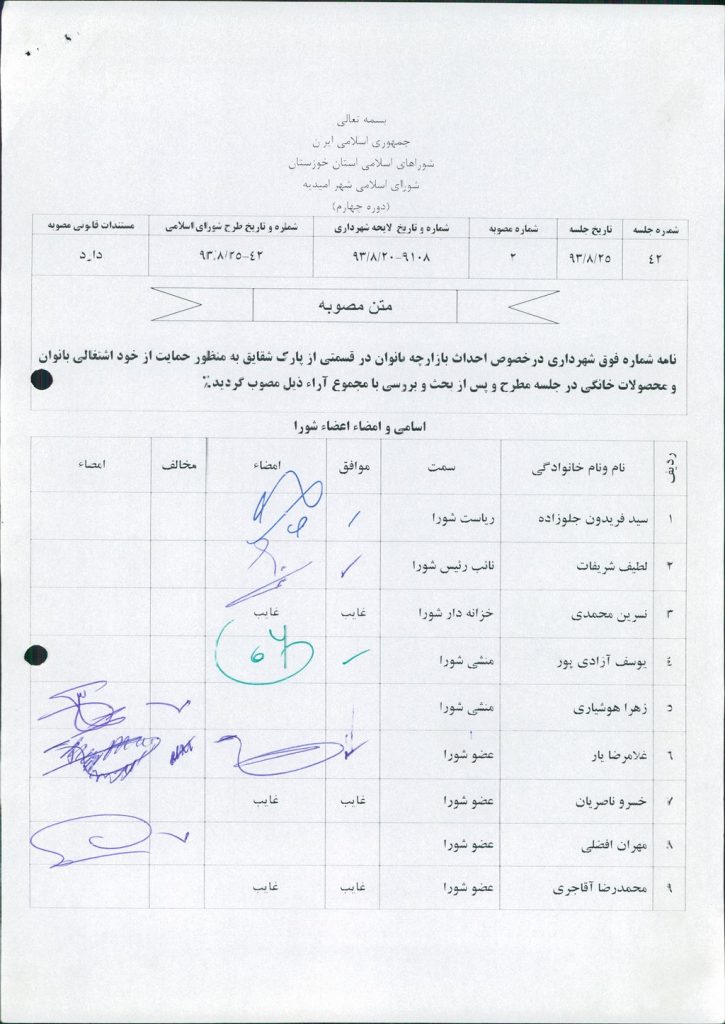 بسمه تعالی
جمهوری اسلامی ایرن
شوراهای اسلامی استان خوزستان
شورای اسلامی شهر امیدیه
(دوره چهارم)
شماره جلسه تاریخ جلسه شماره مصوبه شماره و تاریخ لایحه شهرداری شماره و تاریخ طرح شورای اسلامی مستندات قانونی مصوبه
٤٢ ٩٣/٨/٢٥ ٢ ٩٣/٨/٢٠-٩١٠٨ ٩٣/٨/٢٥-٤٢ دارد
متن مصوبه
نامه شماره فوق شهرداری درخصوص احداث بازارچه بانوان در قسمتی از پارک شقایق به منظور حمایت از خود اشتغالی بانوان
و محصولات خانگی در جلسه مطرح و پس از بحث و بررسی با مجموع آراء ذیل مصوب گردید.٪
اسامی و امضاء اعضاء شورا
ردیف نام ونام خانوادگی سمت موافق امضاء مخالف امضاء
١ سید فریدون جلوزاده ریاست شورا
٢ لطیف شریفات نائب رئیس شورا
٣ نسرین محمدی خزانه دار شورا غایب غایب
٤ یوسف آزادی پور منشی شورا
٥ زهرا هوشیاری منشی شورا
٦ غلامرضا یار عضو شورا
٧ خسرو ناصریان عضو شورا غایب غایب
٨ مهران افضلی عضو شورا
٩ محمدرضا آقاجری عضو شورا غایب غایب